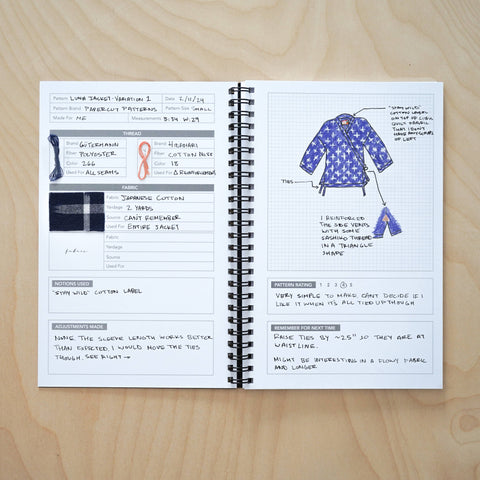 Pattern LUNA JACKET - VARIATION 2 Date 2/11/24
Pattern Brand PAPERCUT PATTERNS Pattern Size SMALL
Made For ME Measurements B:34 W:29
THREAD
Brand GÜTERMANN Brand
Fiber POLYESTER Fiber COTTON
Color 266 Color 18
Used For ALL SEAMS Used For Δ REINFORCEMENT
FABRIC
Fiber JAPANESE COTTON
Yardage 2 YARDS
Source CAN'T REMEMBER
Used For ENTIRE JACKET
fabric
Fiber
Yardage
Source
Used For
NOTIONS USED
"STAY WILD" COTTON LABEL
ADJUSTMENTS MADE
NONE. THE SLEEVE LENGTH WORKS BETTER
THAN EXPECTED. I WOULD MOVE THE TIES
THOUGH. SEE RIGHT →
"STAY WILD"
COTTON LABEL
ON TOP OF
THAT I DON'T
HAVE ANYMORE
OF LEFT
TIES
I REINFORCED
THE SIDE VENTS
WITH SOME
SASHIKO THREAD
IN A TRIANGLE
SHAPE
PATTERN RATING 1 2 3 4 5
VERY SIMPLE TO MAKE. CAN'T DECIDE IF I
LIKE IT WHEN IT'S ALL TIED UP THOUGH
REMEMBER FOR NEXT TIME
RAISE TIES BY ~2.5" SO THEY ARE AT
WAIST LINE.
MIGHT BE INTERESTING IN A FLOWY FABRIC
AND LONGER